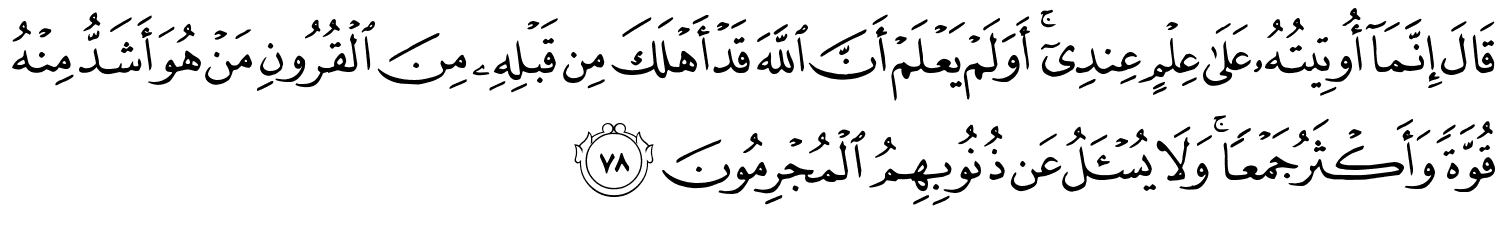 قَالَ إِنَّمَآ أُوتِيتُهُۥ عَلَىٰ عِلْمٍ عِندِىٓ ۚ أَوَلَمْ يَعْلَمْ أَنَّ ٱللَّهَ قَدْ أَهْلَكَ مِن قَبْلِهِۦ مِنَ ٱلْقُرُونِ مَنْ هُوَ أَشَدُّ مِنْهُ
قُوَّةً وَأَكْثَرُ جَمْعًا ۚ وَلَا يُسْـَٔلُ عَن ذُنُوبِهِمُ ٱلْمُجْرِمُونَ ٧٨